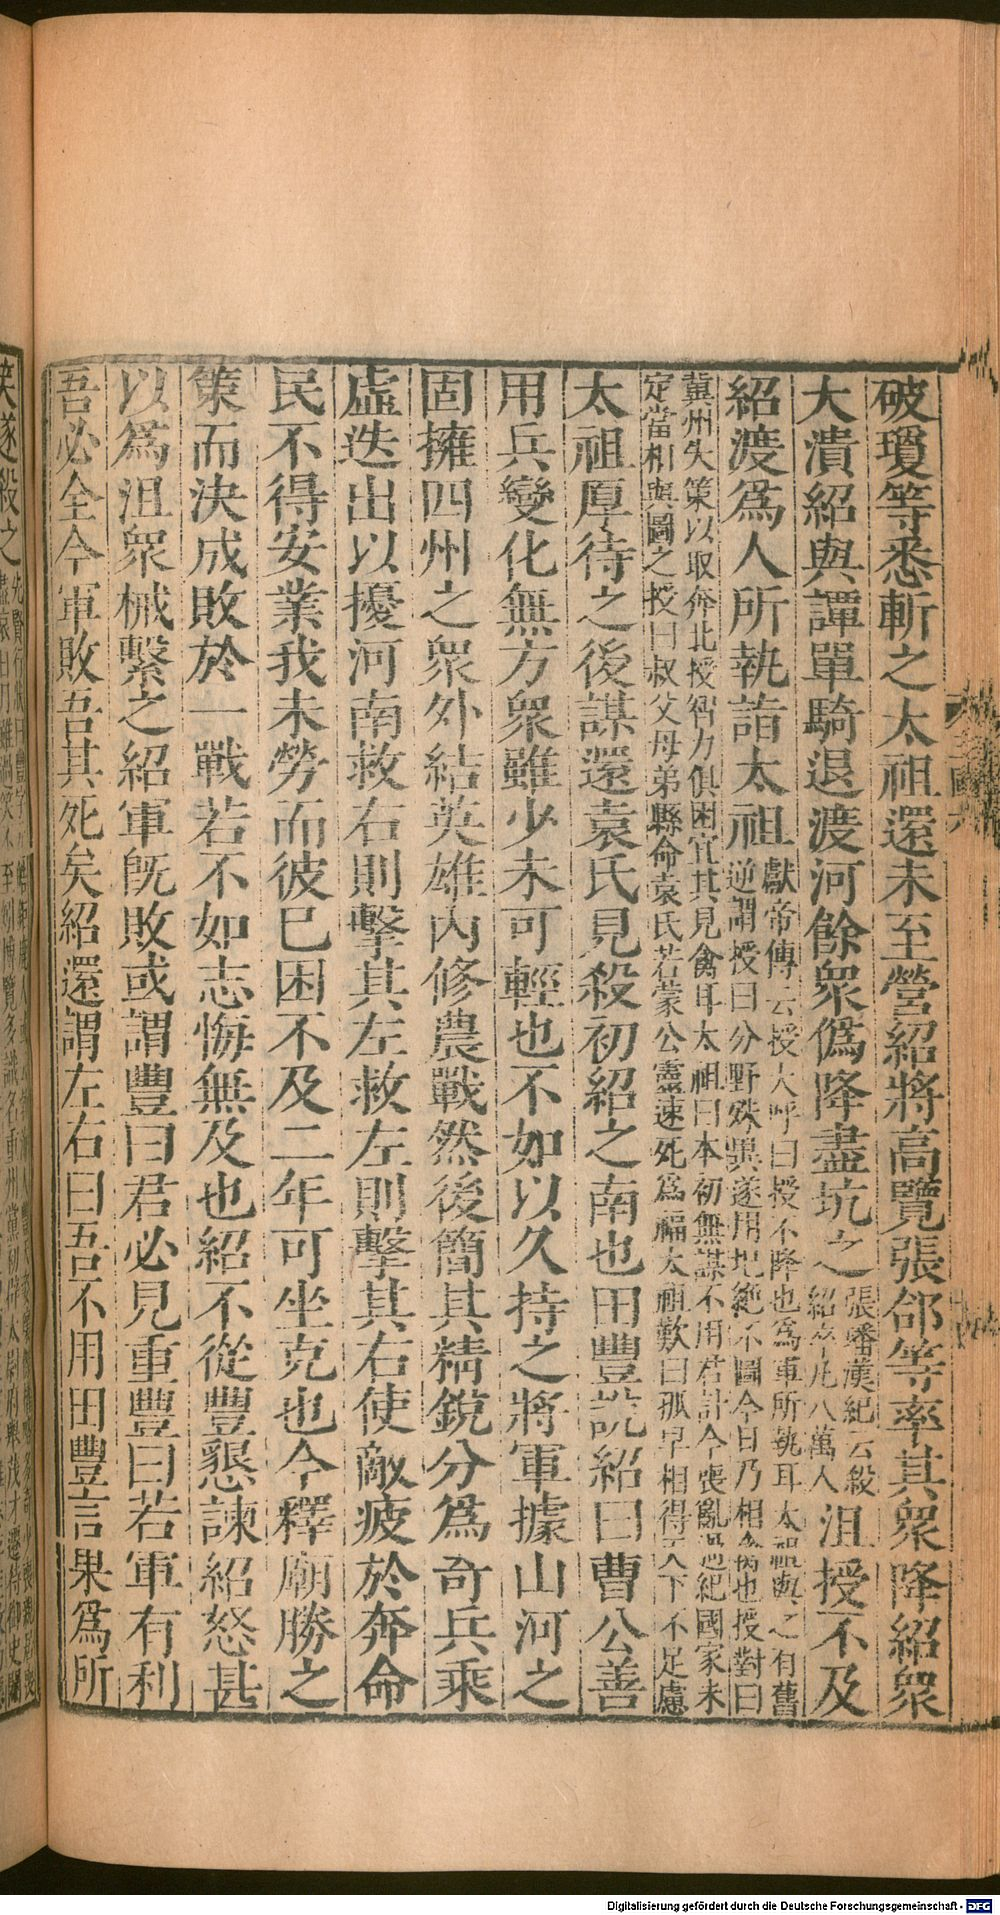 破瓊等悉斬之太祖還未至營紹將高覽張郃等率其衆降紹衆
大潰紹與譚單騎退渡河餘衆僞降盡坑之
張璠漢紀云殺
紹卒凡八萬人
沮授不及
紹渡爲人所執詣太祖
獻帝傳云授大呼曰授不降也爲軍所執耳太祖與之有舊
逆謂授曰分野殊異遂用圮絶不圖今日乃相禽也授對曰
冀州失策以取奔北授智力俱困宜其見禽耳太祖曰本初無謀不用君計今喪亂過紀國家未
定當相與圖之授曰叔父母弟縣命袁氏若蒙公靈速死爲福太祖歎曰孤早相得天下不足慮
太祖厚待之後謀還袁氏見殺初紹之南也田豐說紹曰曹公善
用兵變化無方衆雖少未可輕也不如以久持之將軍據山河之
固擁四州之衆外結英雄內修農戰然後簡其精銳分爲奇兵乘
虛迭出以擾河南救右則擊其左救左則擊其右使敵疲於奔命
民不得安業我未勞而彼已困不及二年可坐克也今釋廟勝之
策而決成敗於一戰若不如志悔無及也紹不從豐懇諫紹怒甚
以爲沮衆械繫之紹軍既敗或謂豐曰君必見重豐曰若軍有利
吾必全今軍敗吾其死矣紹還謂左右曰吾不用田豐言果爲所
笑遂殺之
Digitalisierung gefördert durch die Deutsche Forschungsgemeinschaft - DFG